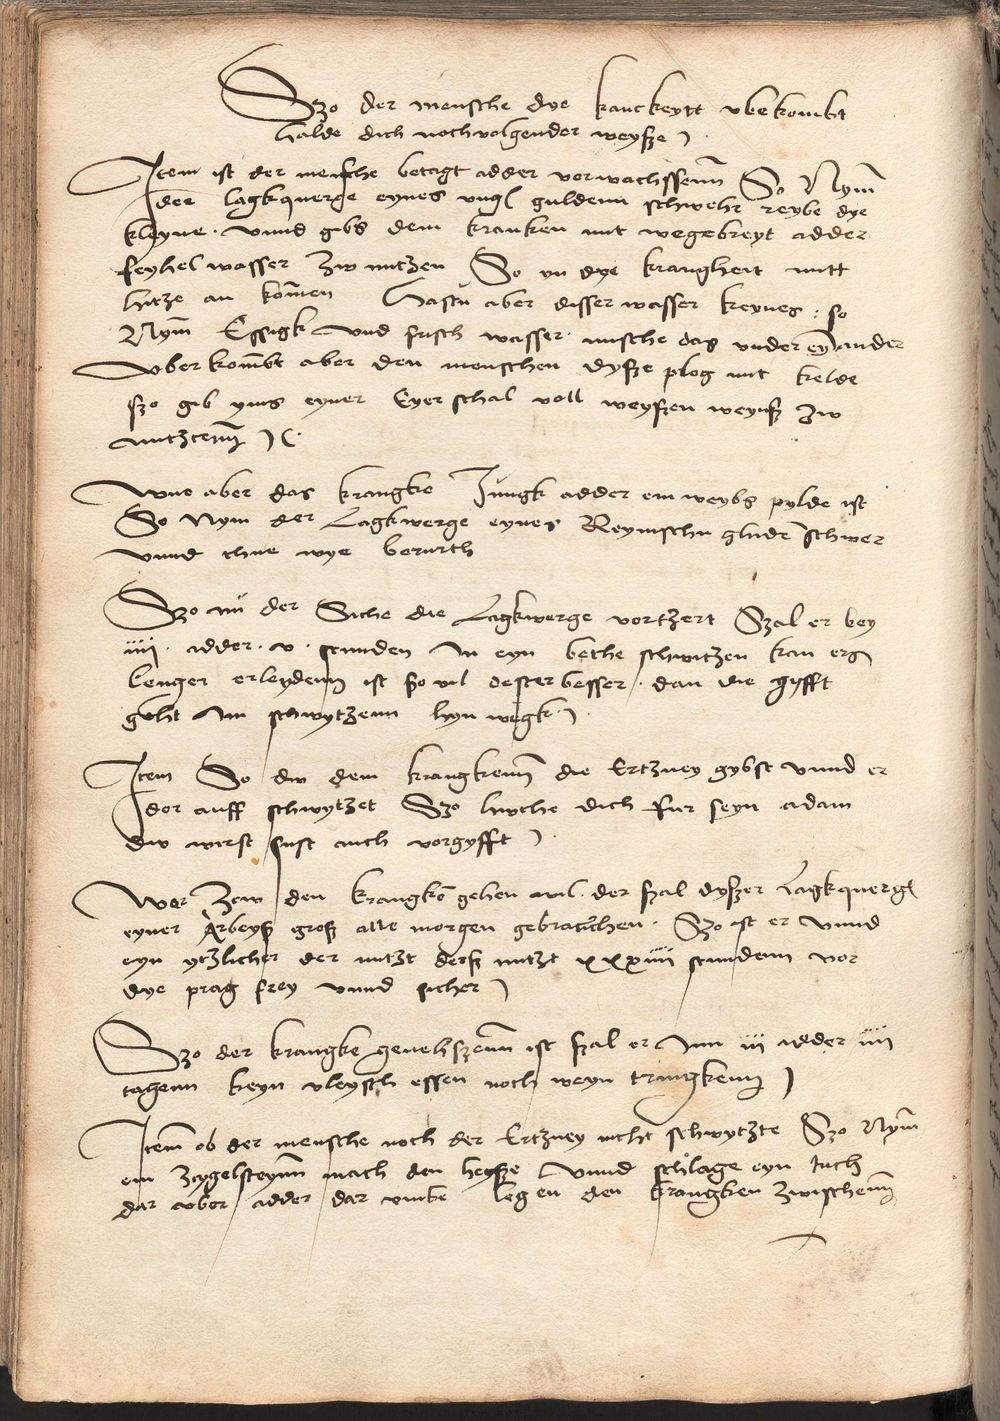 Szo der mensche dye kranckeytt vbekombt
halde dich nochvolgender weysze
Item ist der mensche betagt adder vorwachssenn So Nym
der lagkquerge eynes vngl guldenn schwehr reybe dye
kleyne · vnnd gibs dem krancken mit wegebreyt adder
feyhel wasser zw nutzen So yn dye krangheit mitt
hitze an komen Hastu aber disser wasser keynes : so
Nym Essigk vnd frisch wasser · mische das vnder eynander
Vberkombt aber den menschen dysze plog mit kelde
szo gib yms eyner Eyer schal voll weyszen weynsz zw
nutzenn
Wue aber das krangke Jungk adder ein weybs pylde ist
So Nym der Lagkwerge eynes Reynischn gluden schwer
vnnd thue wye berurth
Szo nu der Siche die Lagkwerge vortzert Szal er bey
iiii · adder · v · stunden In eyn bethe schwitzen kan ers
lenger erleydenn ist szo vil dester besser · dan die gyfft
geht Im schwytzenn hyn wegk
Item So dw dem krangkenn die Ertzney gybst vnnd er
dor auff schwytzet Szo huthe dich fur seyn adam
dw wirst sust auch vorgyfft
Wer Zcw den krangken gehen wil · der szal dyszer Lagkquergl
eyner Arbeysz grosz alle morgen gebrauchen · Szo ist er vnnd
eyn ytzlicher der nutzt desz nutzt xxxiiii stundenn vor
dye prag frey vnnd sicher
Szo der krangke genehszenn ist szal er Inn iii adder iiii
tagenn keyn vleysch essen noch weyn tringkenn
Item ob der mensche noch der Ertzney nicht schwytzte Szo Nym
ein Zcygelsteynn mach den heysze Vnnd schlage eyn tuch
dar vbor adder dar vmbe leg en den krangken zwischenn